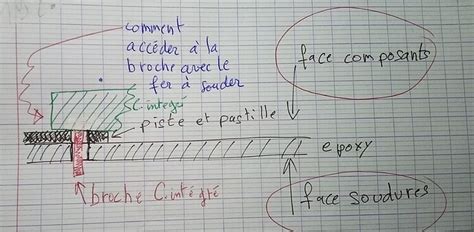 comment
accéder à la
broche avec le
fer à souder
face composants
C. intégré
piste et pastille
epoxy
broche C. intégré
face soudures